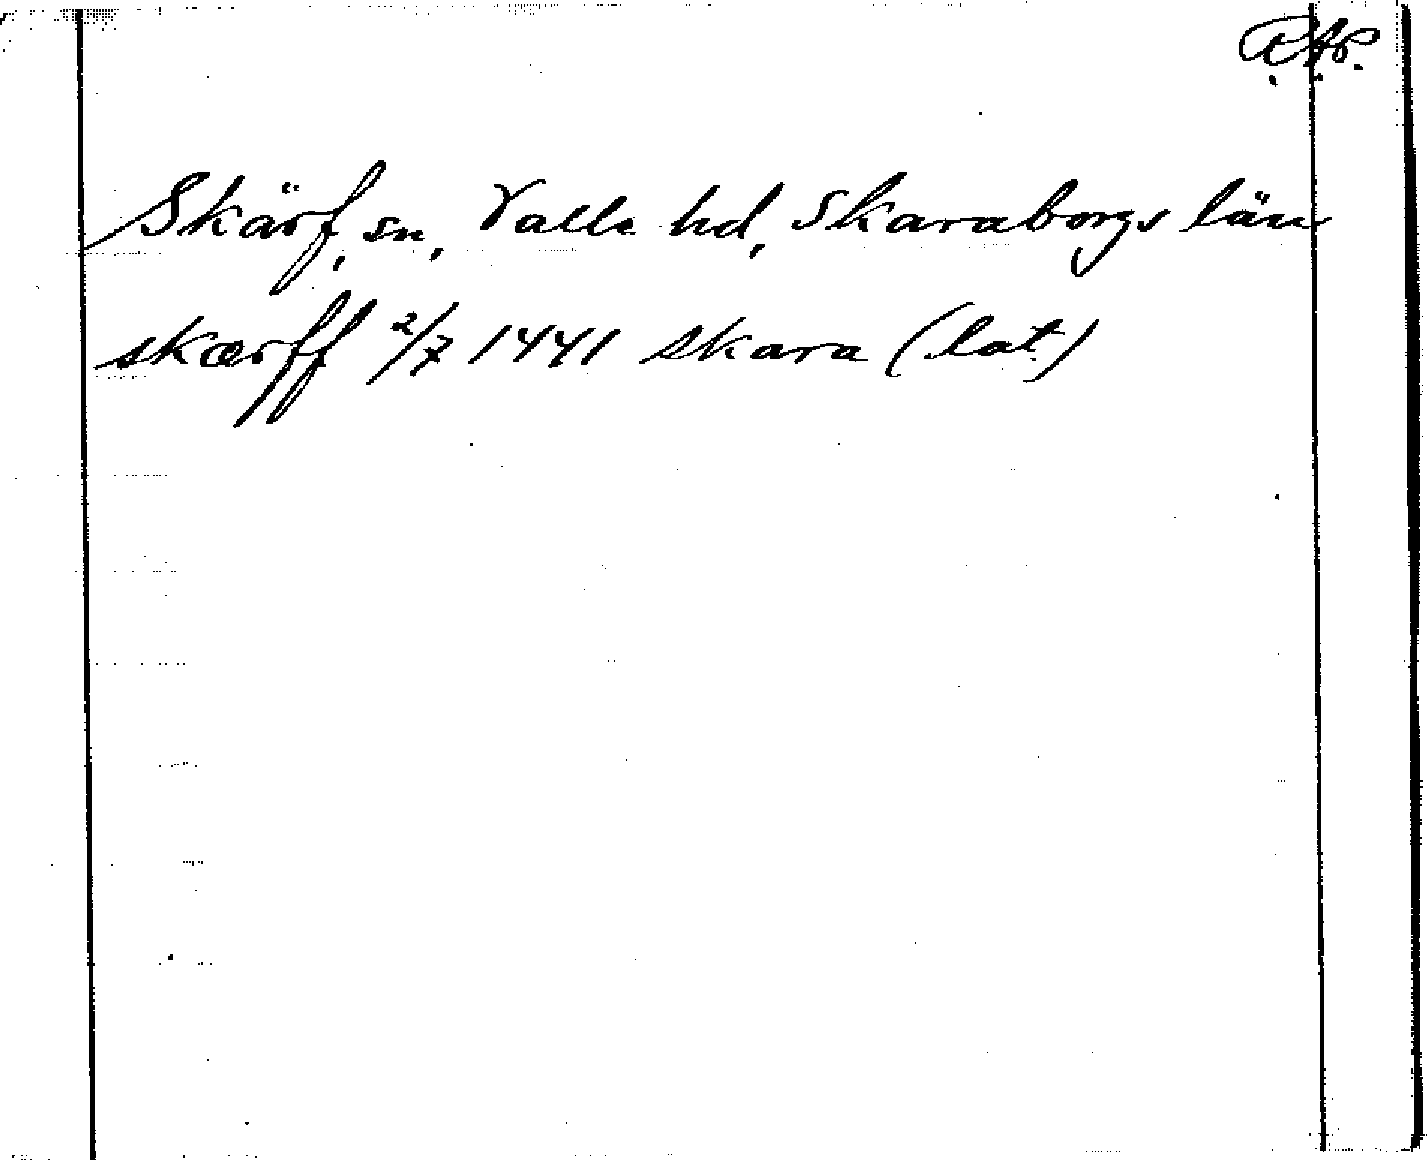 R.A.P.
Skärf, sn, Valle hd, Skaraborgs län
skærff 2/7 1441 Skara (lat.)